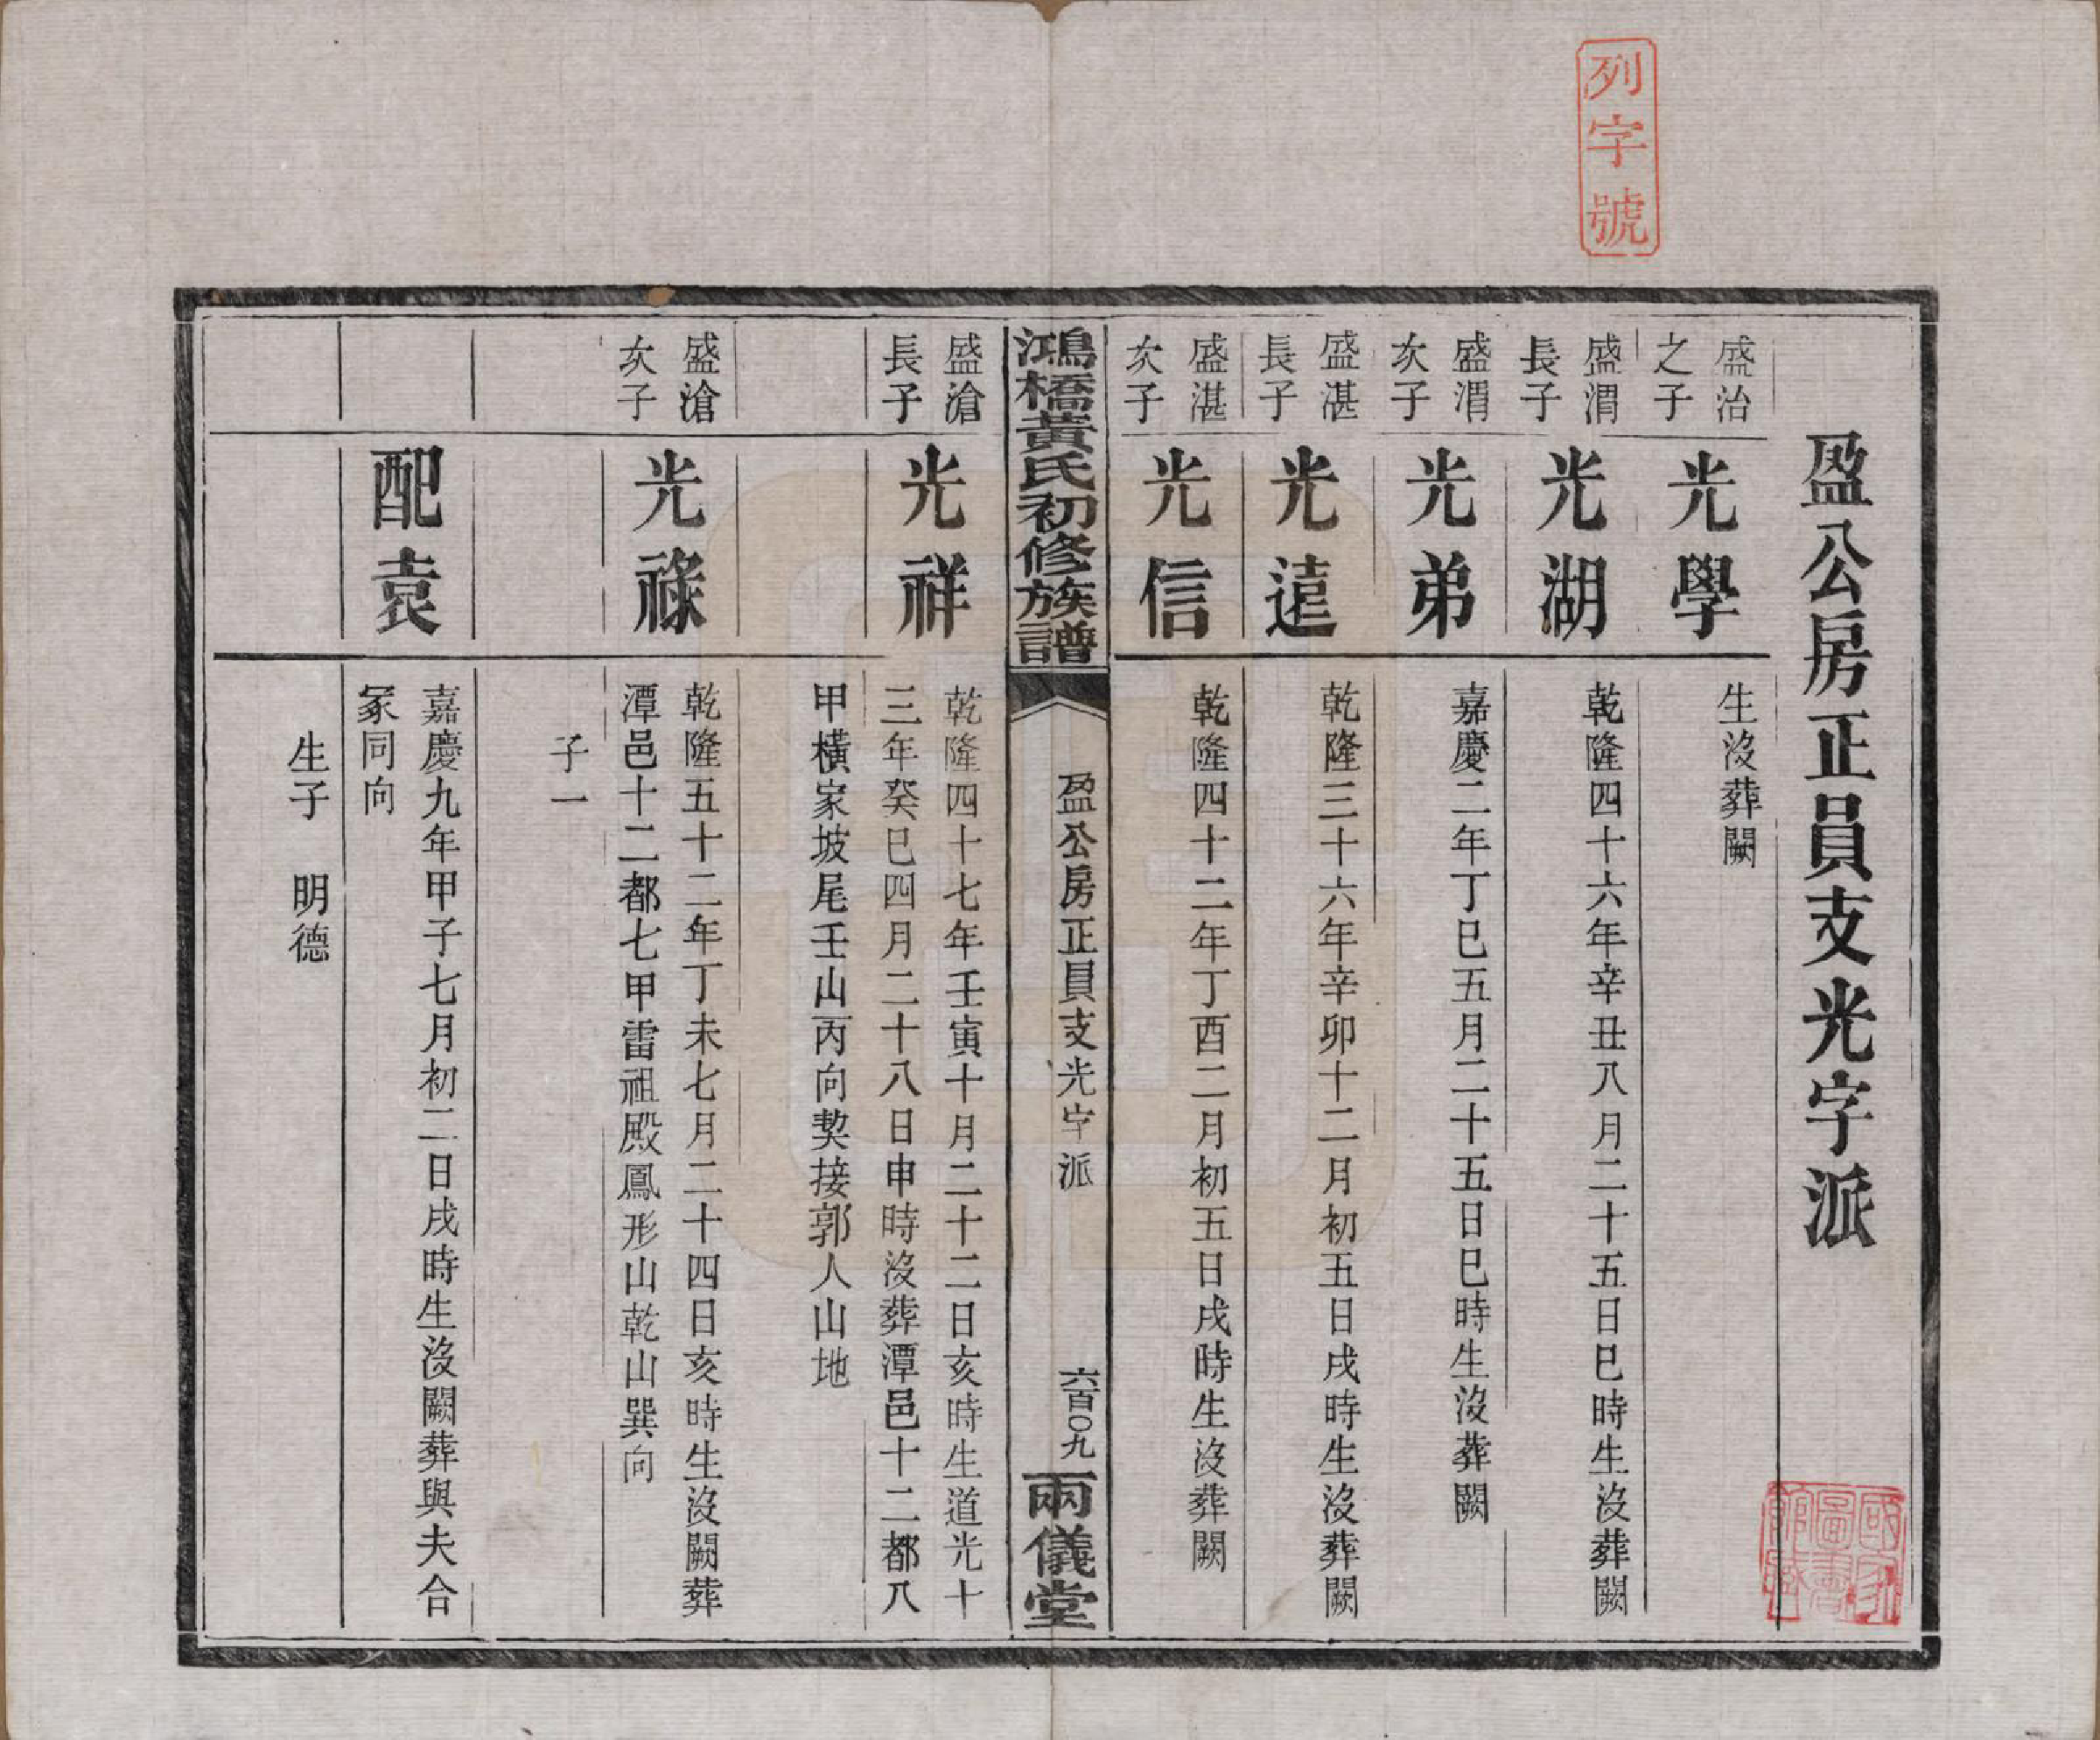 列字號
盈公房正員支光字派
盛治
之子
光學
生沒葬闕
盛渭
長子
光湖
乾隆四十六年辛丑八月二十五日巳時生沒葬闕
盛渭
次子
光弟
嘉慶二年丁巳五月二十五日巳時生沒葬闕
盛湛
長子
光遠
乾隆三十六年辛卯十二月初五日戌時生沒葬闕
盛湛
次子
光信
乾隆四十二年丁酉二月初五日戌時生沒葬闕
鴻橋黃氏初修族譜
盈公房正員支光字派
六百〇九
兩儀堂
盛滄
長子
光祥
乾隆四十七年壬寅十月二十二日亥時生道光十
三年癸巳四月二十八日申時沒葬潭邑十二都八
甲橫家坡尾壬山丙向契接郭人山地
盛滄
次子
光祿
乾隆五十二年丁未七月二十四日亥時生沒闕葬
潭邑十二都七甲雷祖殿鳳形山乾山巽向
子一
配袁
嘉慶九年甲子七月初二日戌時生沒闕葬與夫合
冢同向
生子　明德
國家
圖書
館藏